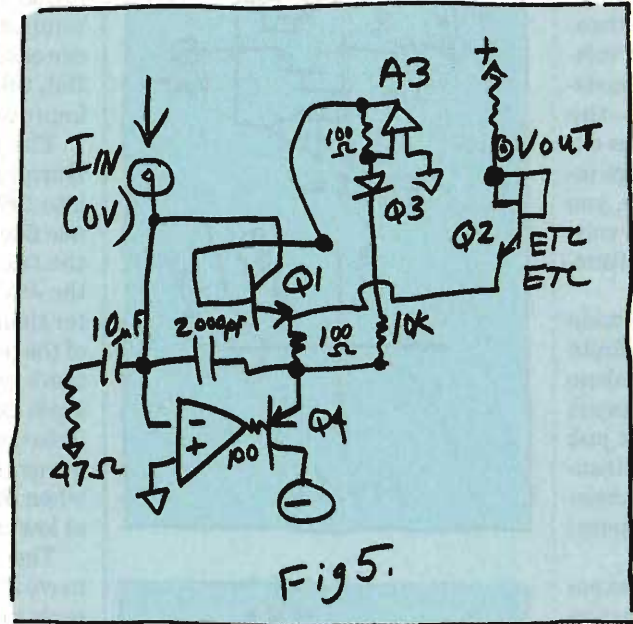 A3
+
IN
(0V)
100
Ω
Q3
VOUT
Q2
ETC
ETC
Q1
10µF
2000pf
100
Ω
10K
Q4
-
+
100
47Ω
-
Fig 5.